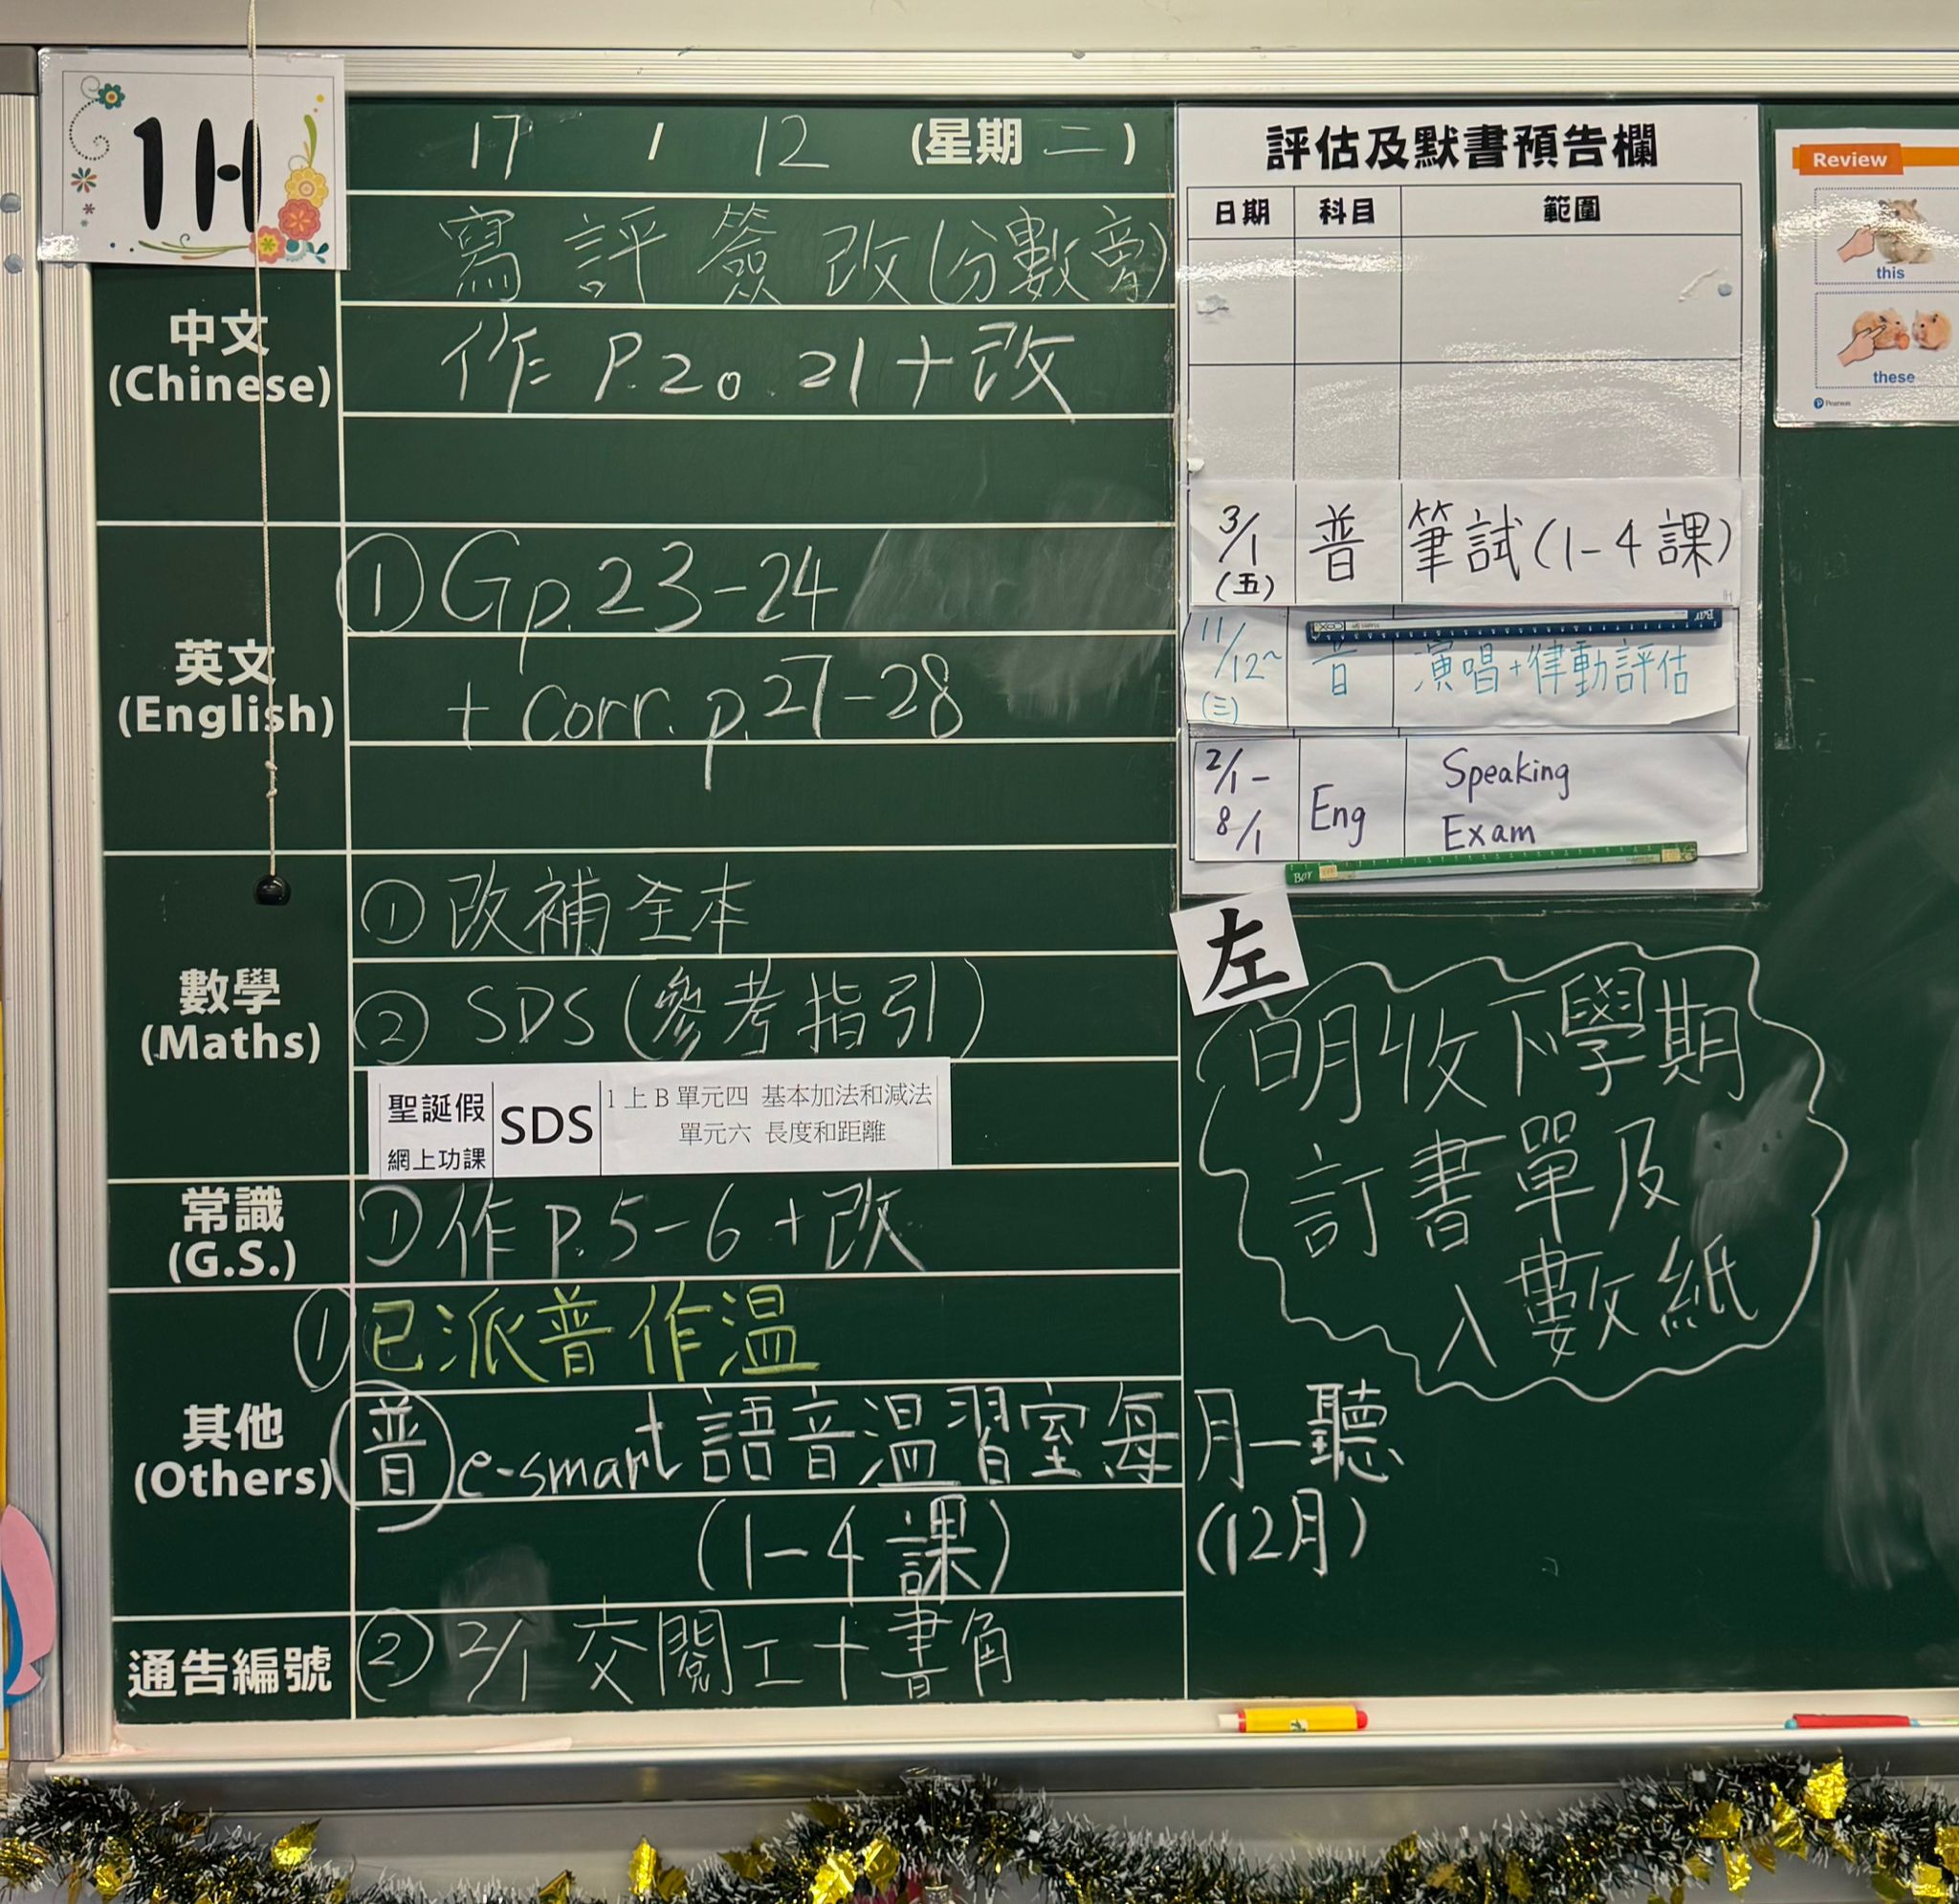 1H
17 / 12 (星期二)
寫評簽改(分數旁)
中文
(Chinese)
作 P.20.21+改
英文
(English)
① Gp.23-24
+ Corr. p.27-28
數學
(Maths)
① 改補全本
② SDS (參考指引)
聖誕假
網上功課
SDS
1上B 單元四 基本加法和減法
單元六 長度和距離
常識
(G.S.)
① 作 P.5-6+改
其他
(Others)
① 已派普作温
普 e-smart 語音温習室每月一聽
(1-4課) (12月)
通告編號
② 2/1 交閱工+書角
評估及默書預告欄
日期 科目 範圍
3/1 (五) 普 筆試(1-4課)
11/12~ (三) 音 演唱+律動評估
2/1- 8/1 Eng Speaking Exam
左
明收下學期
訂書單及
入數紙
Review
this
these
Pearson